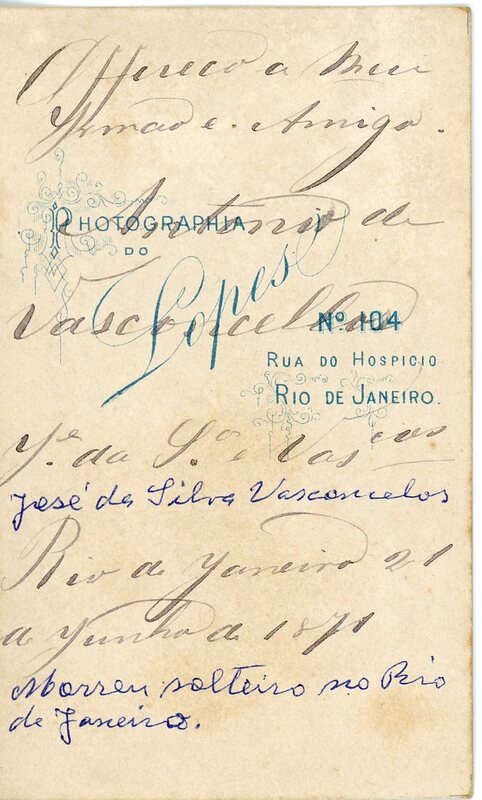 Offereco a Meu
Irmão e Amigo.
Antonio de
PHOTOGRAPHIA
DO
Lopes
Vasconcellos
Nº 104
RUA DO HOSPICIO
RIO DE JANEIRO.
J.e da S.a e Vas.cos
José da Silva Vasconcelos
Rio de Janeiro 21
de Junho de 1871
Morreu solteiro no Rio
de Janeiro.